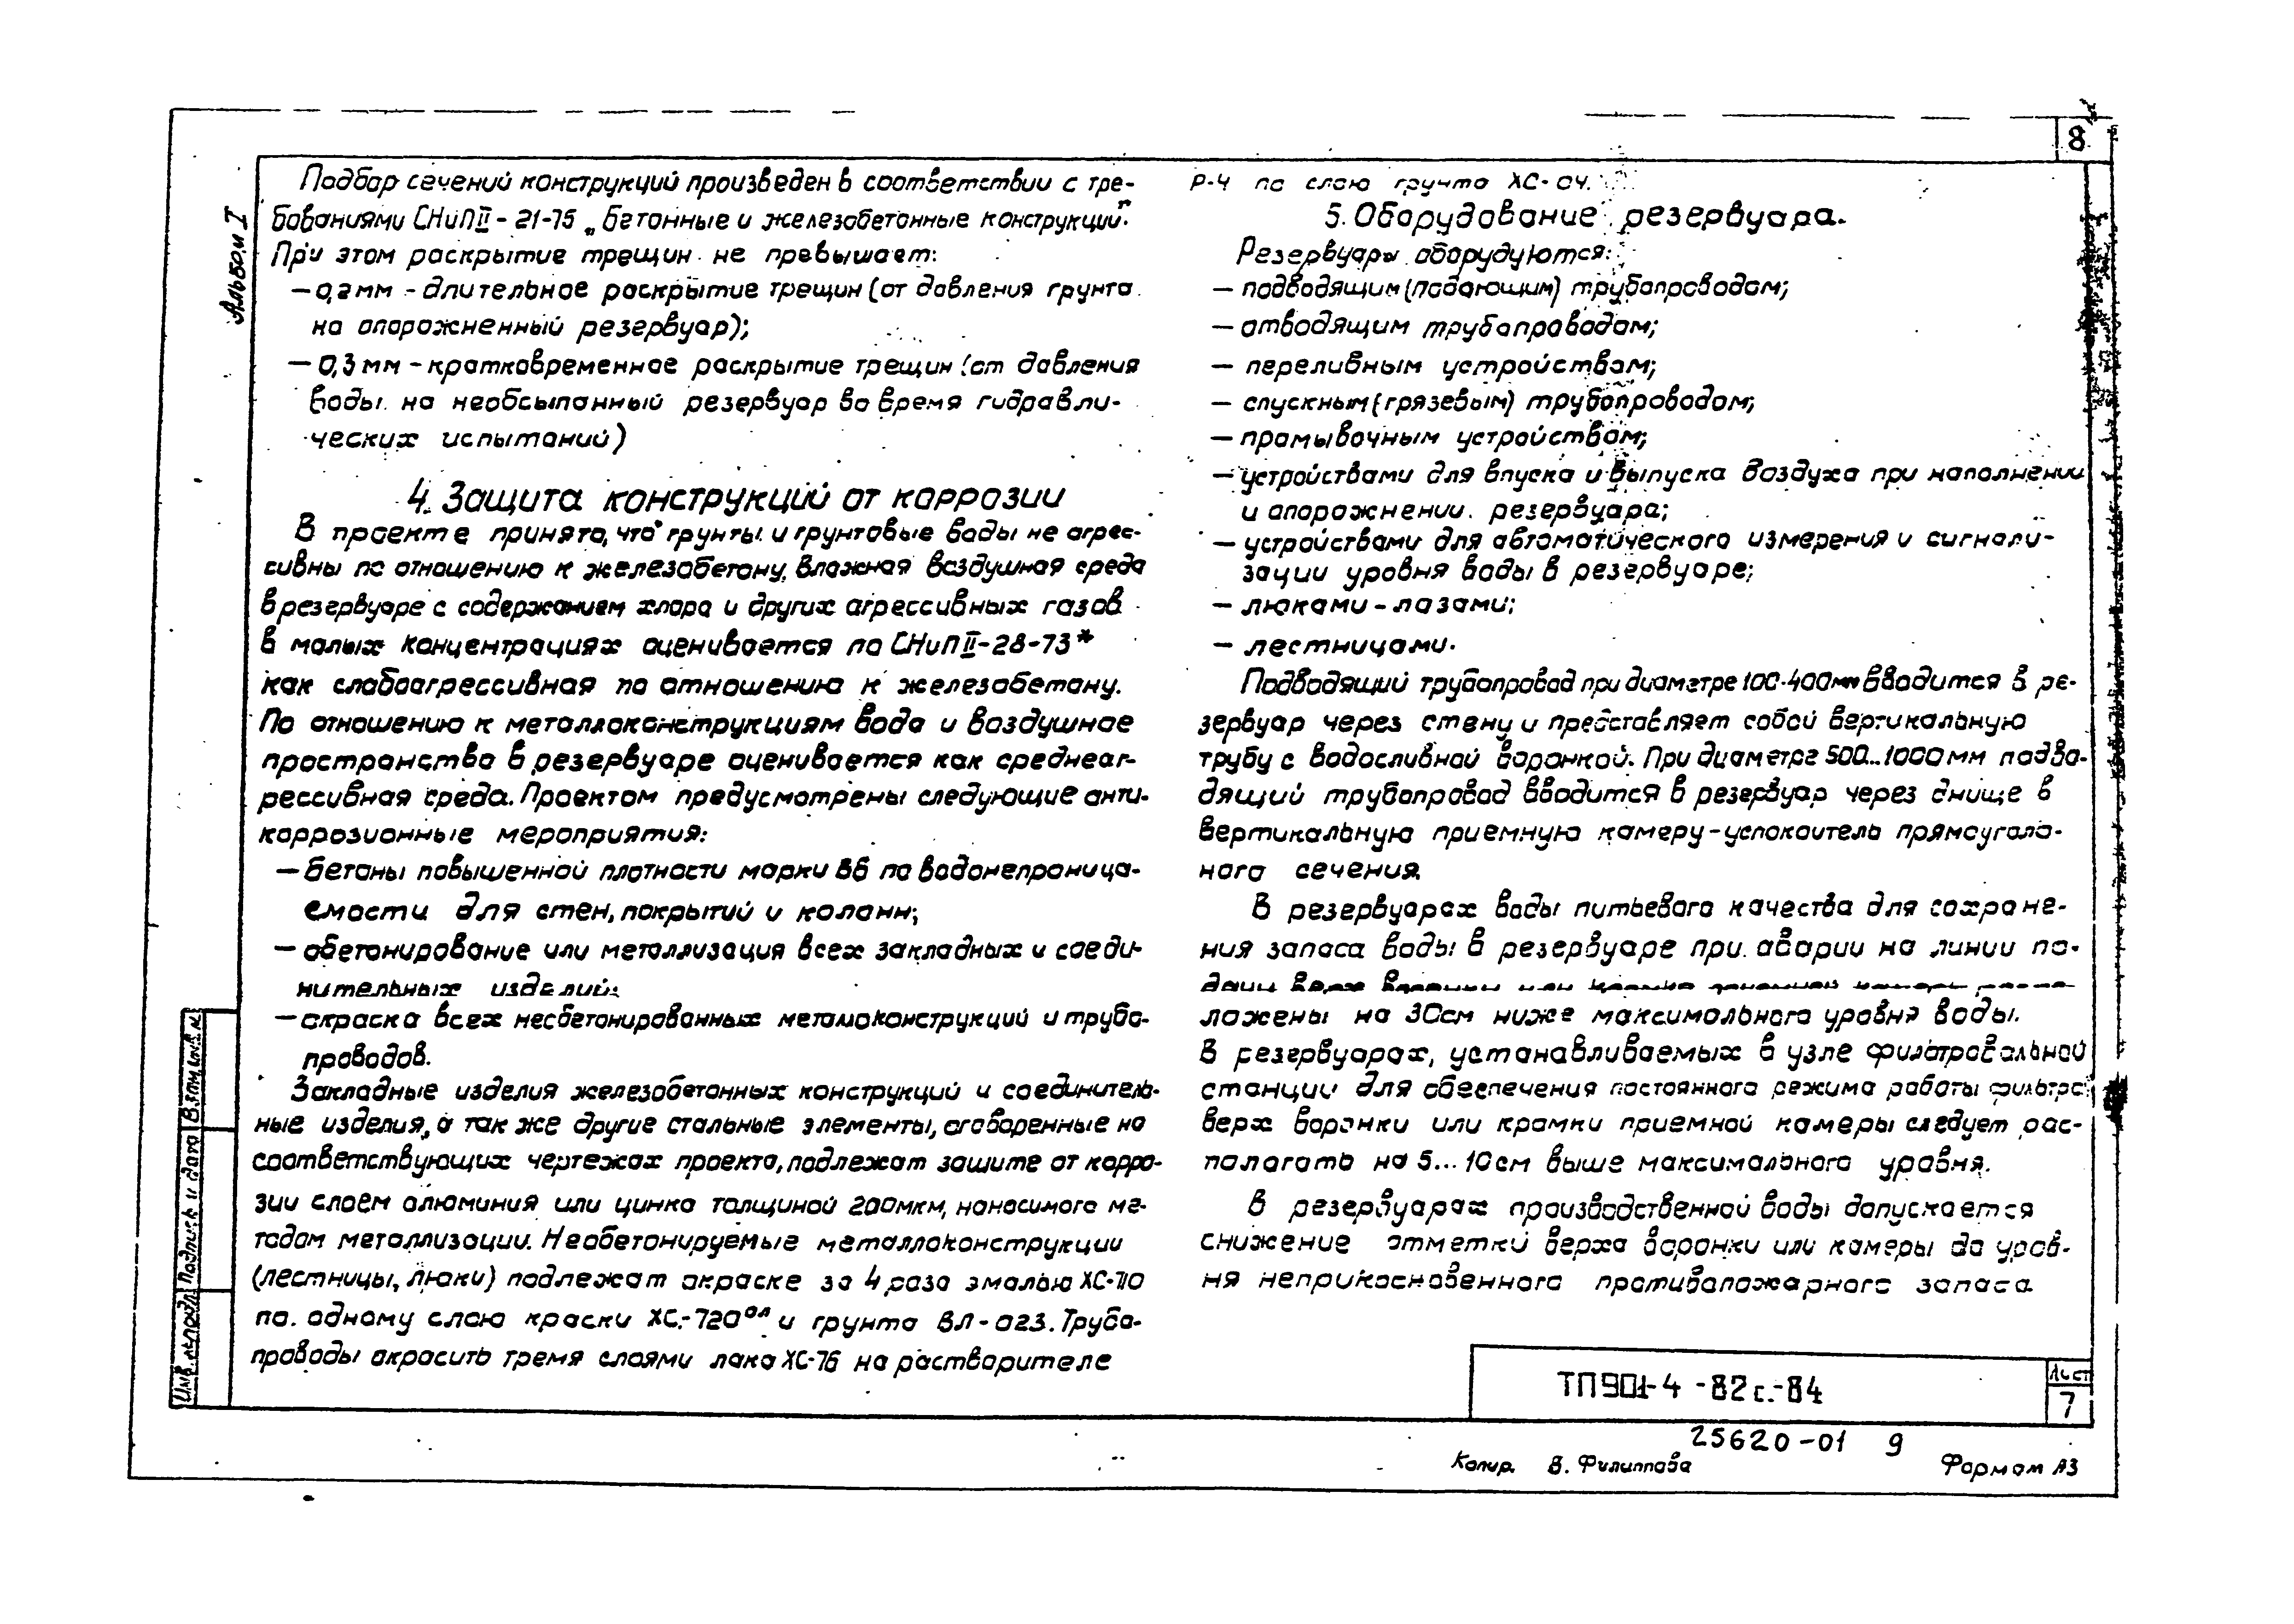 8
Альбом I
Подбор сечений конструкций произведен в соответствии с тре-
бованиями СНиП II-21-75 „Бетонные и железобетонные конструкции".
При этом раскрытие трещин не превышает:
— 0,2 мм - длительное раскрытие трещин (от давления грунта
на опорожненный резервуар);
— 0,3 мм - кратковременное раскрытие трещин (от давления
воды на необсыпанный резервуар во время гидравли-
ческих испытаний)
4. Защита конструкций от коррозии
В проекте принято, что грунты и грунтовые воды не агрес-
сивны по отношению к железобетону, влажная воздушная среда
в резервуаре с содержанием хлора и других агрессивных газов
в малых концентрациях оценивается по СНиП II-28-73*
как слабоагрессивная по отношению к железобетону.
По отношению к металлоконструкциям вода и воздушное
пространство в резервуаре оценивается как среднеаг-
рессивная среда. Проектом предусмотрены следующие анти-
коррозионные мероприятия:
— бетоны повышенной плотности марки В6 по водонепроница-
емости для стен, покрытий и колонн;
— обетонирование или металлизация всех закладных и соеди-
нительных изделий;
— окраска всех несбетонированных металлоконструкций и трубо-
проводов.
Закладные изделия железобетонных конструкций и соединитель-
ные изделия, а так же другие стальные элементы, оговоренные на
соответствующих чертежах проекта, подлежат защите от корро-
зии слоем алюминия или цинка толщиной 200мкм, наносимого ме-
тодом металлизации. Необетонируемые металлоконструкции
(лестницы, люки) подлежат окраске за 4 раза эмалью ХС-710
по одному слою краски ХС-720 ал и грунта ВЛ-023. Трубо-
проводы окрасить тремя слоями лака ХС-76 на растворителе
Р-4 по слою грунта ХС-04.
5. Оборудование резервуара.
Резервуары оборудуются:
— подводящим (подающим) трубопроводом;
— отводящим трубопроводом;
— переливным устройством;
— спускным (грязевым) трубопроводом;
— промывочным устройством;
— устройствами для впуска и выпуска воздуха при наполнении
и опорожнении резервуара;
— устройствами для автоматического измерения и сигнали-
зации уровня воды в резервуаре;
— люками-лазами;
— лестницами.
Подводящий трубопровод при диаметре 100-400мм вводится в ре-
зервуар через стену и представляет собой вертикальную
трубу с водосливной воронкой. При диаметре 500...1000 мм подво-
дящий трубопровод вводится в резервуар через днище в
вертикальную приемную камеру-успокоитель прямоуголь-
ного сечения.
В резервуарах воды питьевого качества для сохране-
ния запаса воды в резервуаре при аварии на линии по-
дачи верх воронки или кромка приемной камеры распо-
ложены на 30см ниже максимального уровня воды.
В резервуарах, устанавливаемых в узле фильтровальной
станции для обеспечения постоянного режима работы фильтра
верх воронки или кромки приемной камеры следует рас-
полагать на 5...10см выше максимального уровня.
В резервуарах производственной воды допускается
снижение отметки верха воронки или камеры до уров-
ня неприкосновенного противопожарного запаса
Взам. инв. №
Подпись и дата
Инв. № подл.
ТП 901-4-82с.-84
Лист
7
25620-01 9
Копир. В. Филиппова
Формат А3